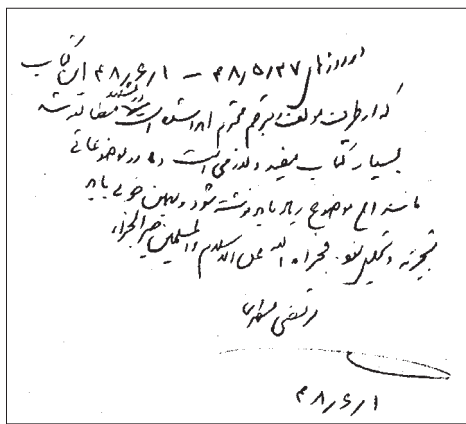 در روزهای ۴۸/۵/۲۷ – ۴۸/۶/۱ این کتاب
که از طرف مؤلف محترم اهدا شده است مطالعه شد
بسیار کتاب مفید و لازمی است در موضوعاتی
مانند این موضوع زیاد باید نوشته شود و به این خوبی باید
تجزیه و تحلیل شود. فجزاه الله عن الاسلام والمسلمین خیر الجزاء
مرتضی مطهری
۴۸/۶/۱